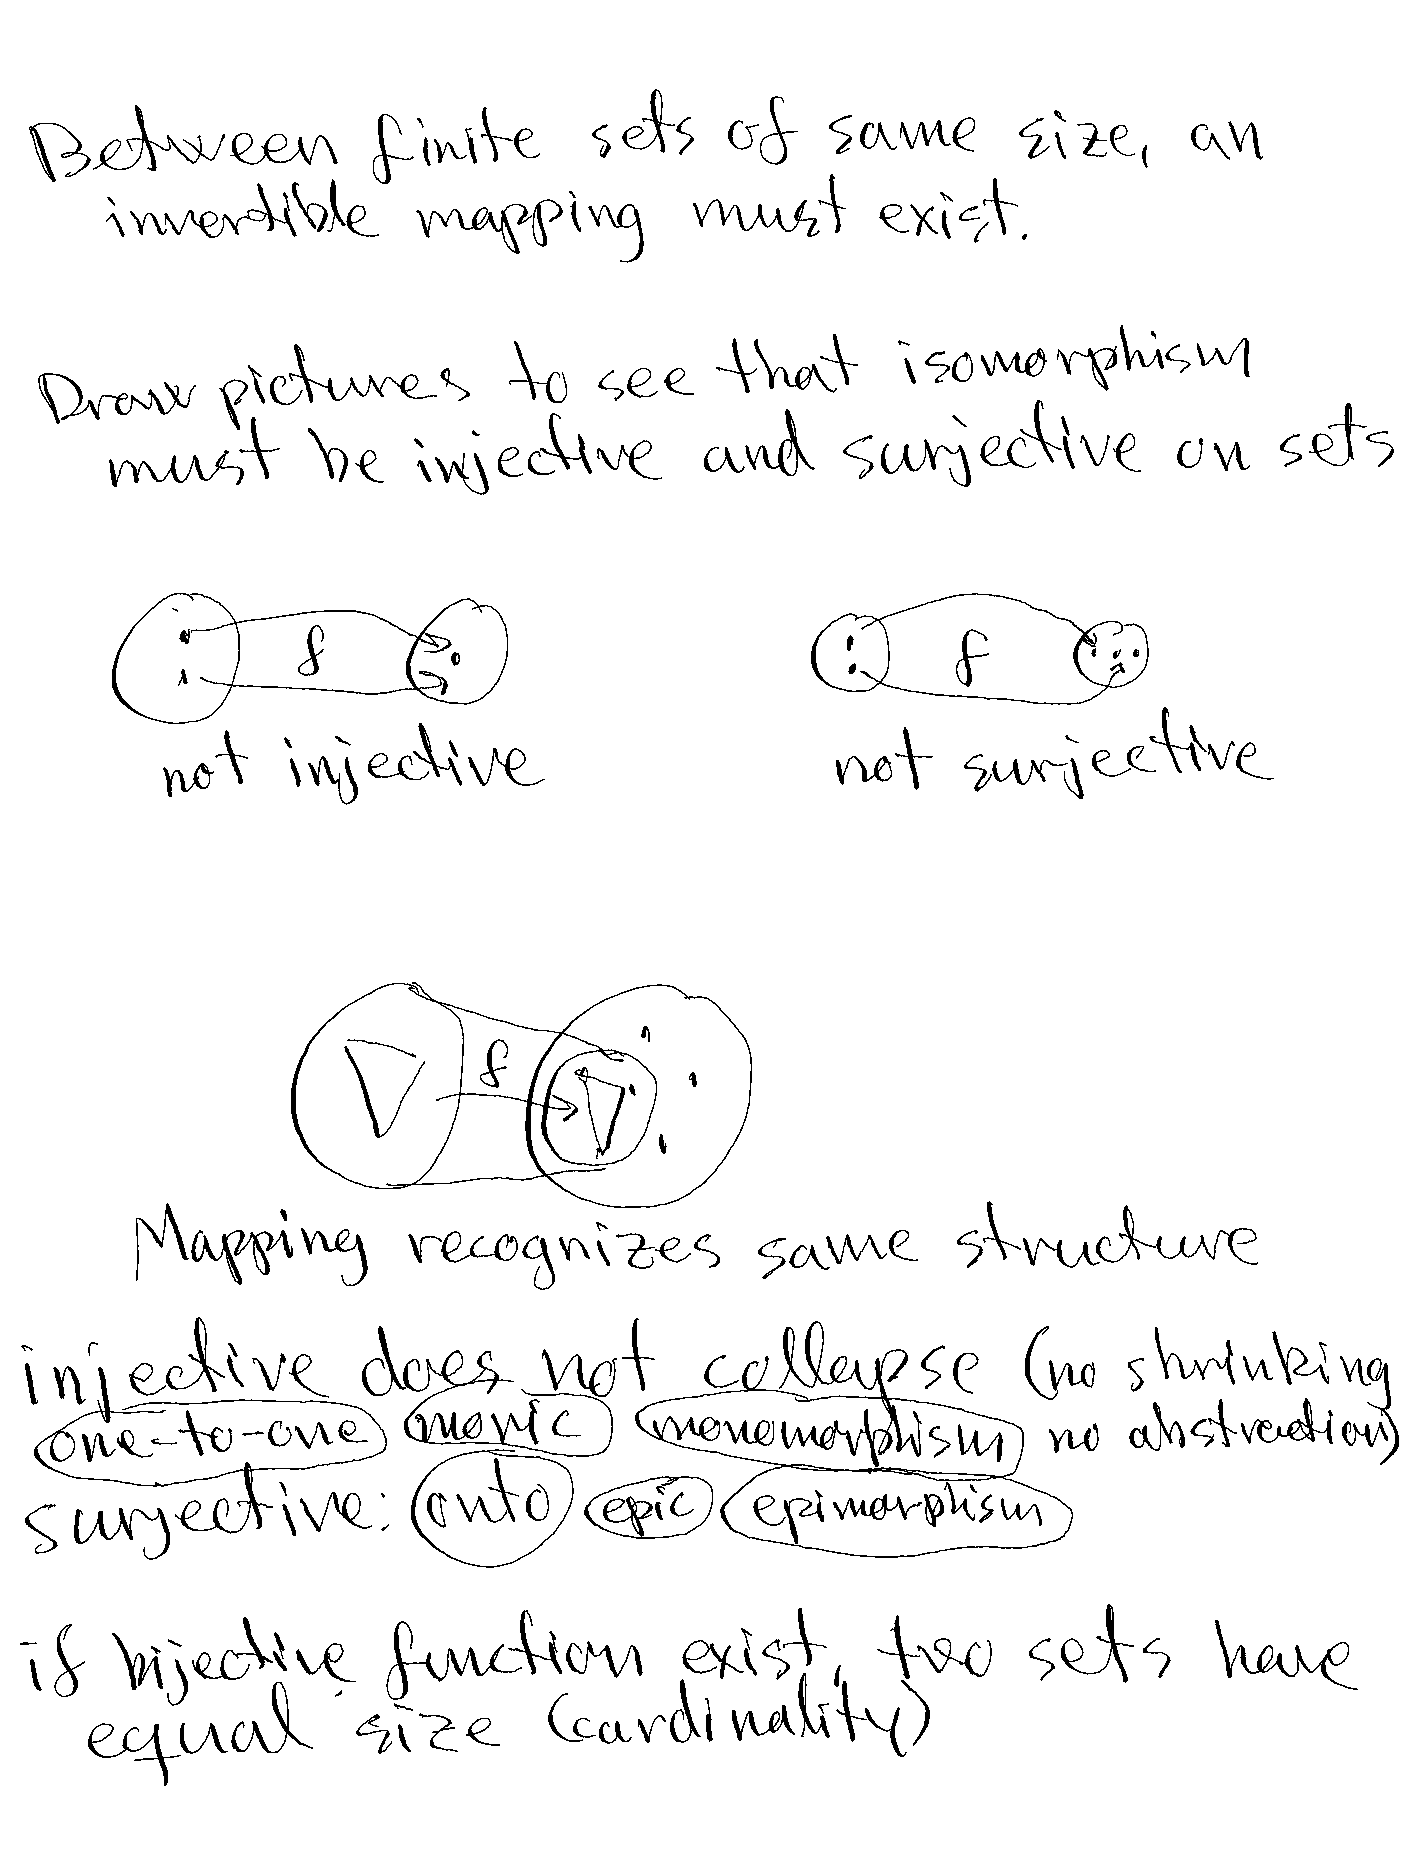 Between finite sets of same size, an
invertible mapping must exist.
Draw pictures to see that isomorphism
must be injective and surjective on sets
f
f
not injective
not surjective
f
Mapping recognizes same structure
injective does not collapse (no shrinking
one-to-one monic monomorphism no abstraction)
surjective: onto epic epimorphism
if bijective function exist, two sets have
equal size (cardinality)